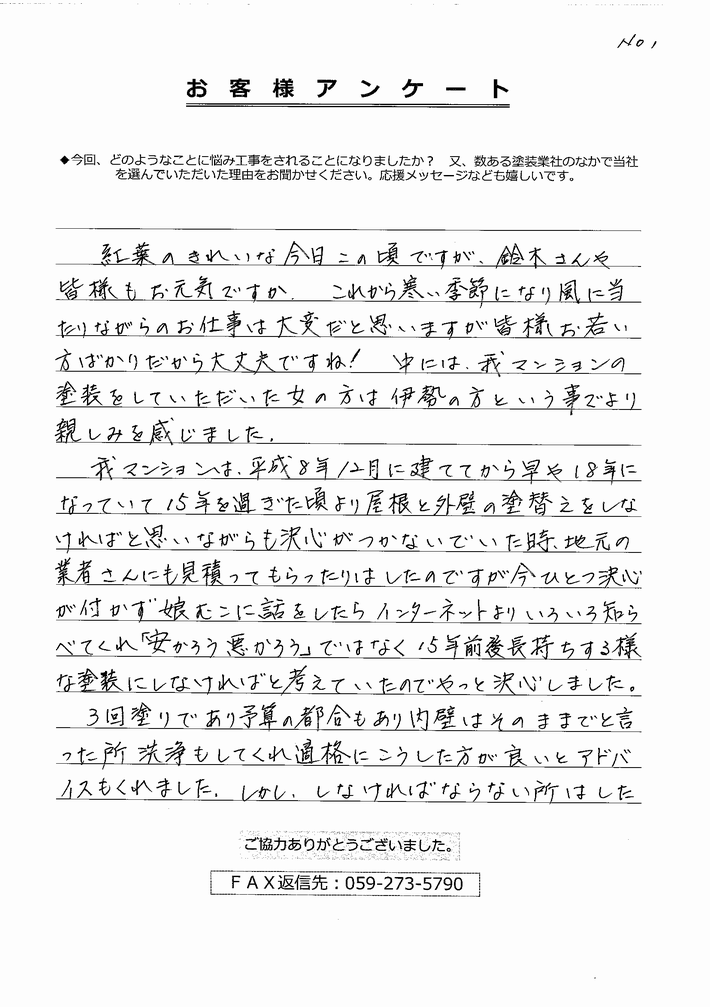 No 1
お客様アンケート
◆今回、どのようなことに悩み工事をされることになりましたか？　又、数ある塗装業社のなかで当社
を選んでいただいた理由をお聞かせください。応援メッセージなども嬉しいです。
紅葉のきれいな今日この頃ですが、鈴木さんや
皆様もお元気ですか。これから寒い季節になり風に当
たりながらのお仕事は大変だと思いますが皆様お若い
方ばかりだから大丈夫ですね！　中には、我マンションの
塗装をしていただいた女の方は伊勢の方という事でより
親しみを感じました。
我マンションは、平成8年12月に建ててから早や18年に
なっていて15年を過ぎた頃より屋根と外壁の塗替えをしな
ければと思いながらも決心がつかないでいた時、地元の
業者さんにも見積ってもらったりはしたのですが今ひとつ決心
が付かず娘むこに話をしたらインターネットよりいろいろ知ら
べてくれ「安かろう悪かろう」ではなく15年前後長持ちする様
な塗装にしなければと考えていたのでやっと決心しました。
3回塗りであり予算の都合もあり内壁はそのままでと言
った所洗浄もしてくれ適格にこうした方が良いとアドバ
イスもくれました。しかし、しなければならない所はした
ご協力ありがとうございました。
ＦＡＸ返信先：059-273-5790